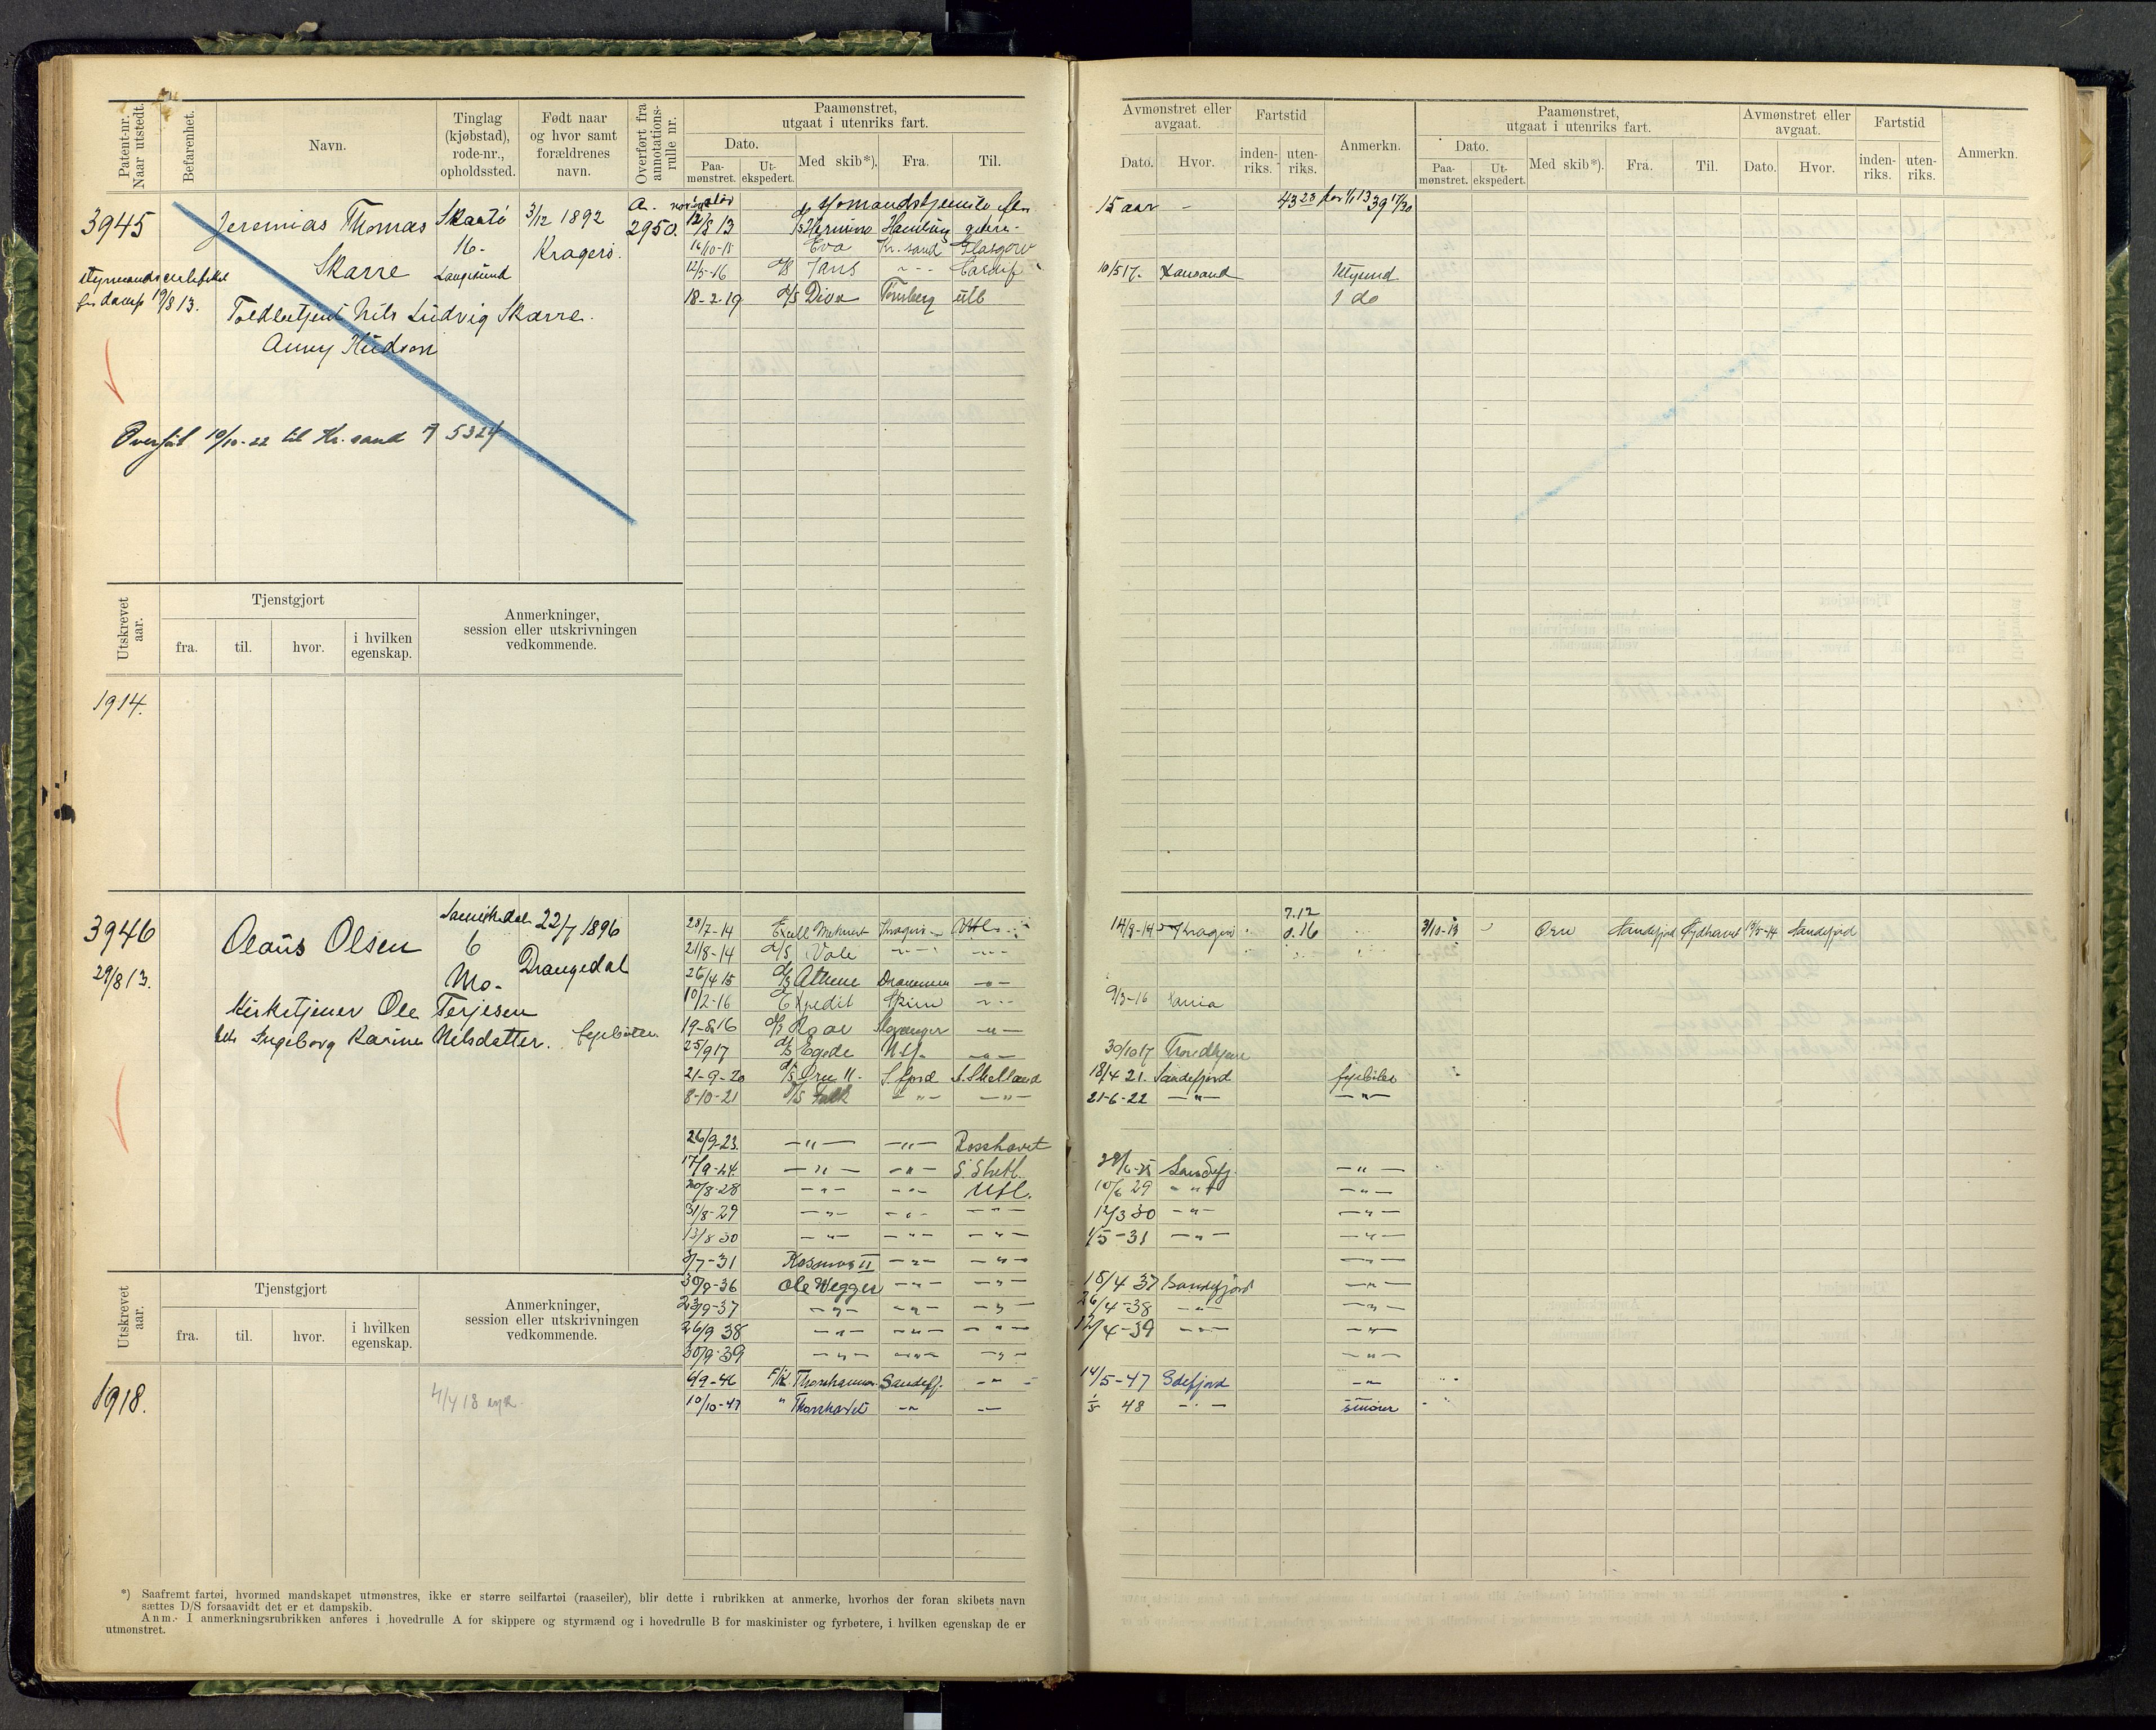 Patent-nr. Naar utstedt.
Befarenhet.
Navn.
Tinglag (kjøbstad), rode-nr., opholdssted.
Født naar og hvor samt forældrenes navn.
Overført fra annotations-rulle nr.
Paamønstret, utgaat i utenriks fart.
Dato.
Paa-mønstret.
Ut-ekspedert.
Med skib*).
Fra.
Til.
Avmønstret eller avgaat.
Dato.
Hvor.
Fartstid
inden-riks.
uten-riks.
Anmerkn.
Paamønstret, utgaat i utenriks fart.
Dato.
Paa-mønstret.
Ut-ekspedert.
Med skib*).
Fra.
Til.
Avmønstret eller avgaat.
Dato.
Hvor.
Fartstid
inden-riks.
uten-riks.
Anmerkn.
3945
Jeremias Thomas Skarre
Skaatö 16. Langesund
3/12 1892 Kragerö.
A. 2950.
for damp 19/8 13.
Nils Ludvig Skarre.
Anny Hudson
Overført 10/10-22 til Kr.sand A 5324
12/8 13 Hermine Hamburg
16/10-15 Eva Kr.sand Glasgow
12/5-16 Cardif
18-2-19 D/S Diva Tønsberg utl
15 aar -
10/5 17.
1 do
Utskrevet aar.
Tjenstgjort
fra.
til.
hvor.
i hvilken egenskap.
Anmerkninger, session eller utskrivningen vedkommende.
1914.
3946
29/8 13.
Olaus Olsen
6
Mo.
22/7 1896
Drangedal
Kirketjener Ole Terjesen
Ingeborg Karine Nelsdatter.
28/7-14 Kragerö Utl.
21/8-14 D/S Vale
26/4 15 D/S Athene Drammen
10/2-16 Expedit Skien
19-8-16 D/S Roar Stavanger
25/9 17 D/S Egede Utl.
21-9-20 D/S Ørn II. S.fjord S. Shetland
8-10-21 D/S Falk
26/9-23 Rosshavet
17/9-24 S. Shetl.
20/8-28 Utl.
31/8-29
13/8 30
3/7-31 Kosmos II
30/9-36 Ole Wegger
23/9-37
26/9 38
30/9-39
6/9-46 F/K Thorshammer Sandefj.
10/10-47 " Thorshavet
7.12
0.16
9/3-16
30/10 17 Trondhjem
18/4 21. Sandefjord fyrböter
21-6-22
10/6 29
12/3 30
1/5-31
15/4 37 Sandefjord
26/4-38
12/4-39
14/5-47 Sdefjord
1/5 48
9/10-13 Ørn Sandefjord Sydhavet 19/5-14 Sandefjord
Utskrevet aar.
Tjenstgjort
fra.
til.
hvor.
i hvilken egenskap.
Anmerkninger, session eller utskrivningen vedkommende.
1918.
*) Saafremt fartøi, hvormed mandskapet utmønstres, ikke er større seilfartøi (raaseiler), blir dette i rubrikken at anmerke, hvorhos der foran skibets navn
sættes D/S forsaavidt det er et dampskib.
Anm. I anmerkningsrubrikken anføres i hovedrulle A for skippere og styrmænd og i hovedrulle B for maskinister og fyrbøtere, i hvilken egenskap de er
utmønstret.